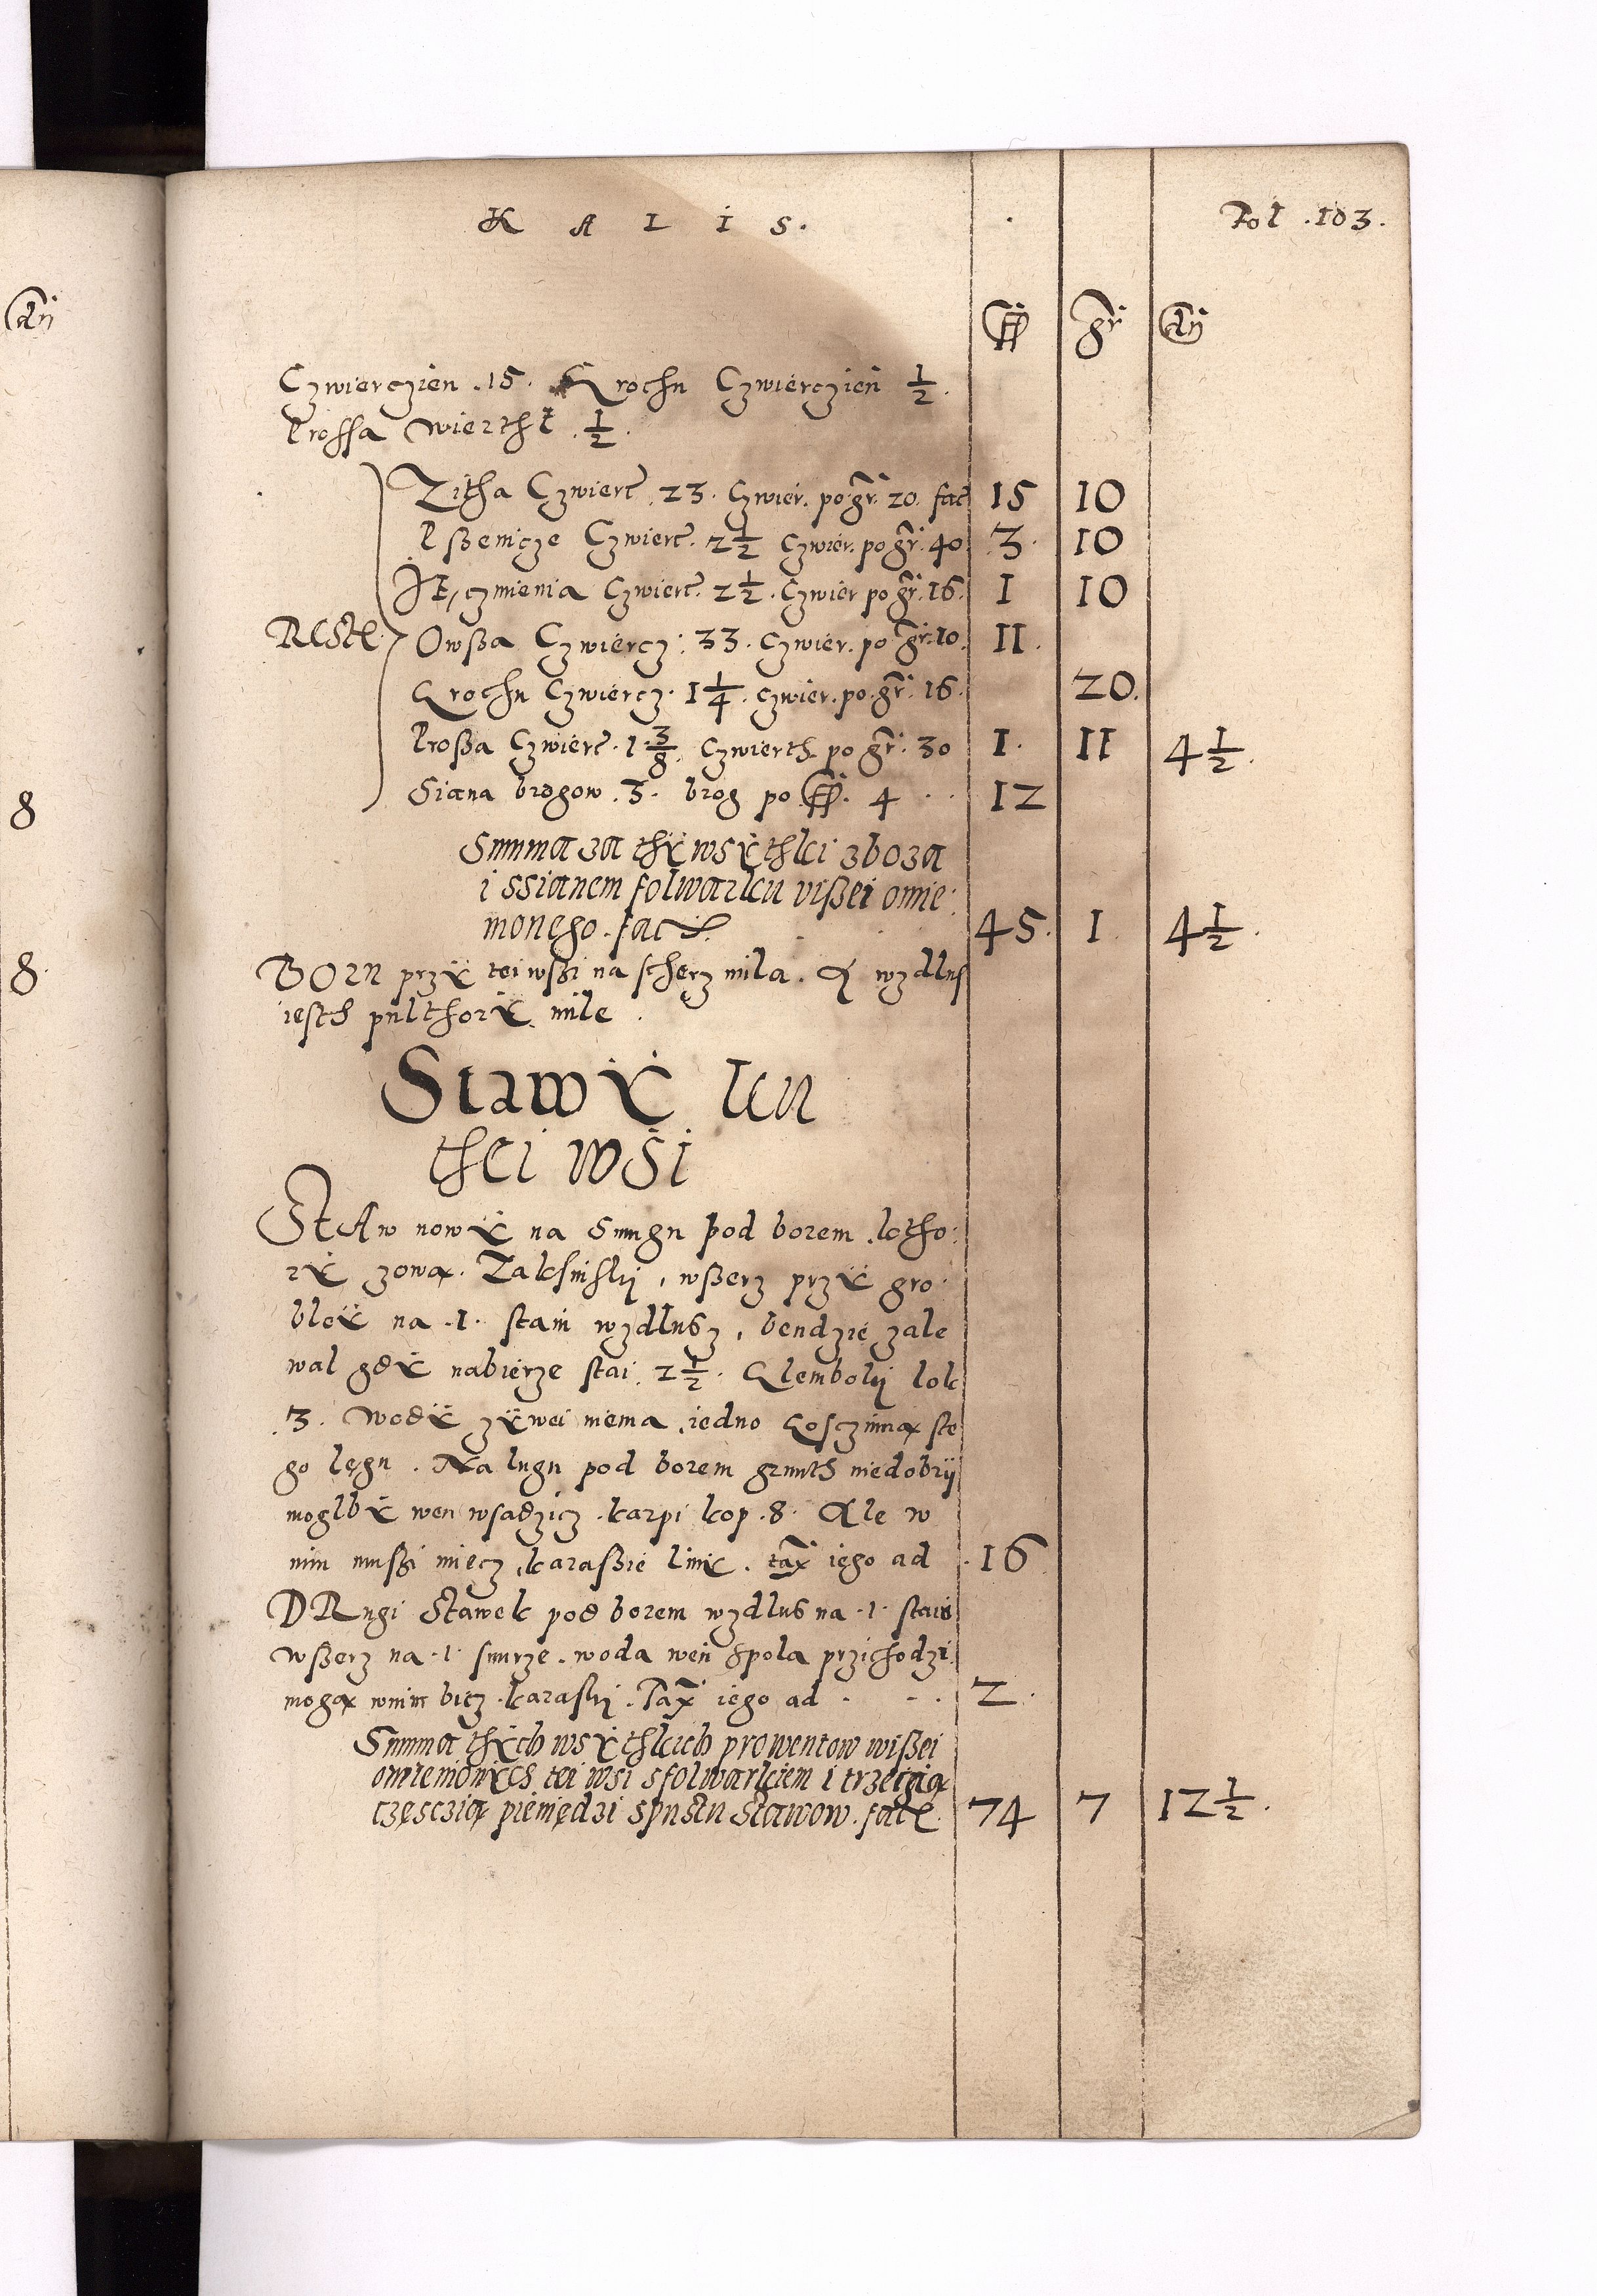 K A L I S. Fol .103.
ff gr dn
dn
Czwierczien .15. Grochu Czwierczień 1/2.
Prossa wierthl. 1/2.
Zitha Czwierc. 23. Czwier. po gr. 20. fac 15 10
Pßenicze Czwierc. 2 1/2 Czwier. po gr. 40 3. 10
JĘczmienia Czwierc. 2 1/2. Czwier po gr. 16. 1 10
Reste Owßa Czwiercz. 33. Czwier. po gr. 10. 11.
Grochu Czwiercz. 1 1/4. czwier. po. gr. 16. 20.
Proßa Czwierc. 1 3/8. Czwierth po gr. 30 1. 11 4 1/2.
8
Siana brogow .3. brog po ff. 4 . . 12
Summa za thÿ wsÿthki zboza
i ssianem folwarku vißei omie:
monego. fac 45. 1. 4 1/2.
8.
BORU przÿ tei wßi na scherz mila. A wzdlus
iesth pulthorÿ mile.
Stawÿ ten
thei wsi
StAw nowÿ na Smugu pod borem ktho:
rÿ zową. Zaksinski, wßerz przÿ gro:
bleÿ na .1. stain wzdlusz, bendzie zale
wal gdÿ nabierze stai. 2 1/2. Glemboki lok
.3. wodÿ zÿwei niema iedno Gosczinną ste
go lęgu. Na lugu pod borem grunth niedobrÿ
moglbÿ wen wsadzicz .karpi kop .8. Ale w
nim mußi miecz karaßie linÿ. tax iego ad .16
DRugi Stawek pod borem wzdlus na .1. stain
wßerz na .1. snurze. woda weń spola przichodzi.
mogą wnim bicz .karaski. Tax iego ad . . . 2.
Summa thÿch wsÿthkich prowentow wißei
omienionÿch tei wsi sfolwarkiem i trzecią
częsczią pieniędzi spustu stawow. fac 74 7 12 1/2.